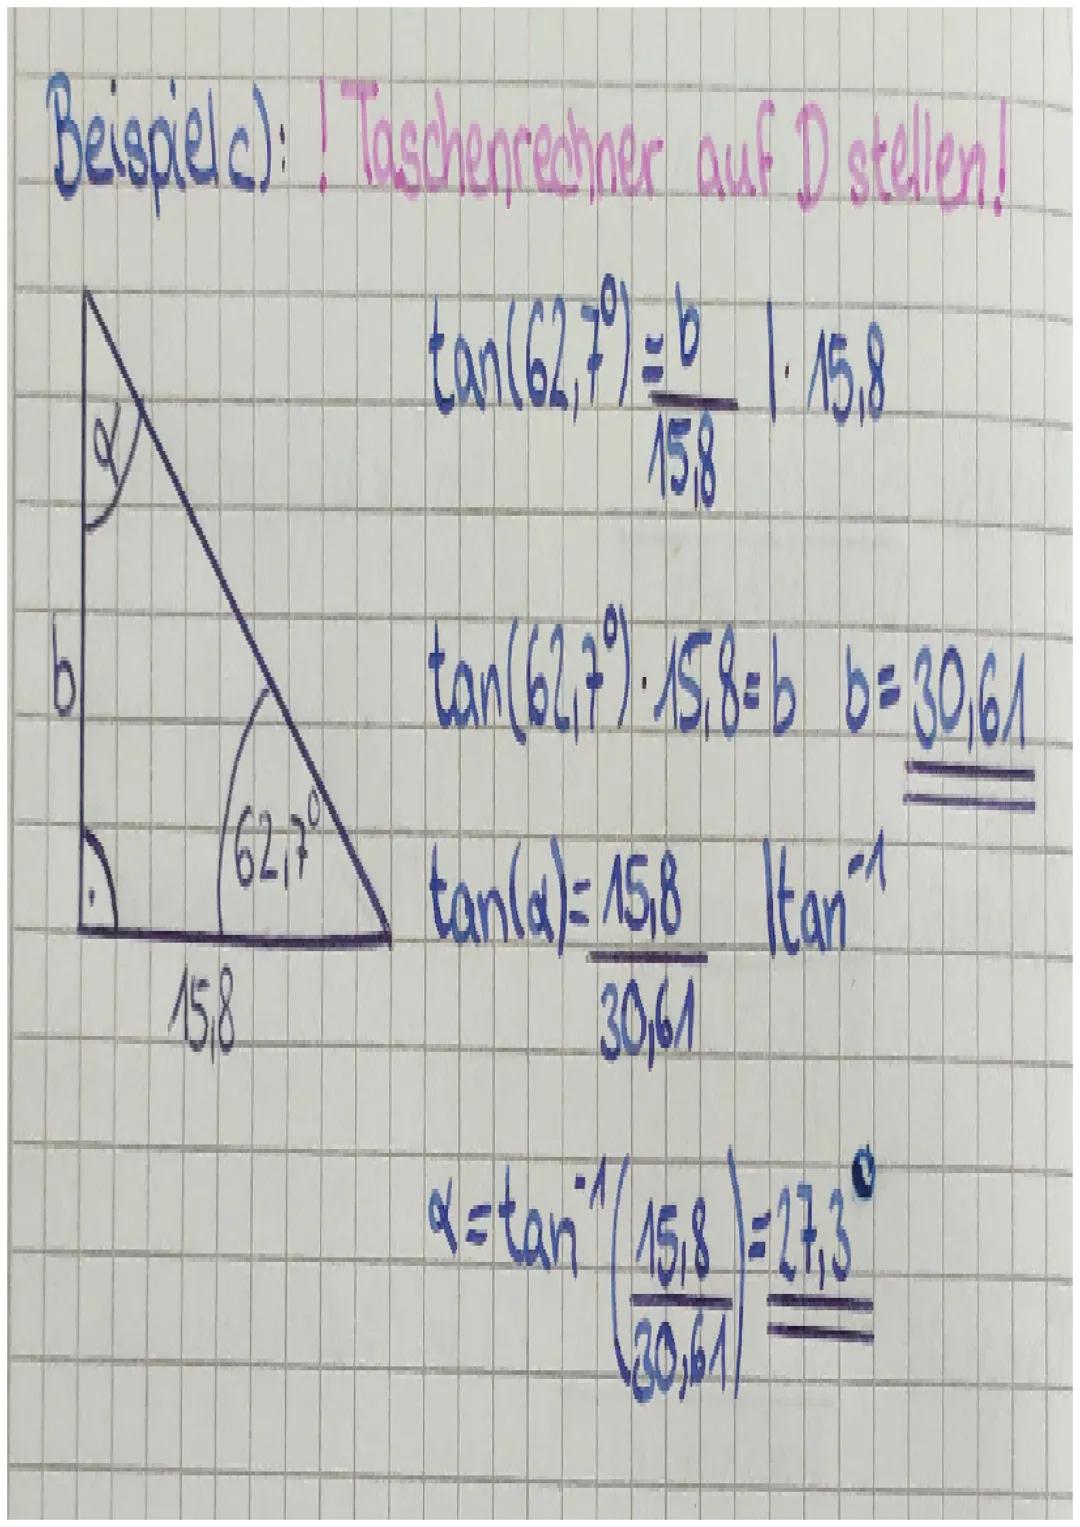 Beispiel c): ! Taschenrechner auf D stellen!
tan(62,7°) = b/15,8 | · 15,8
α
b
tan(62,7°) · 15,8 = b b = 30,61
62,7°
tan(α) = 15,8/30,61 | tan⁻¹
15,8
α = tan⁻¹(15,8/30,61) = 27,3°